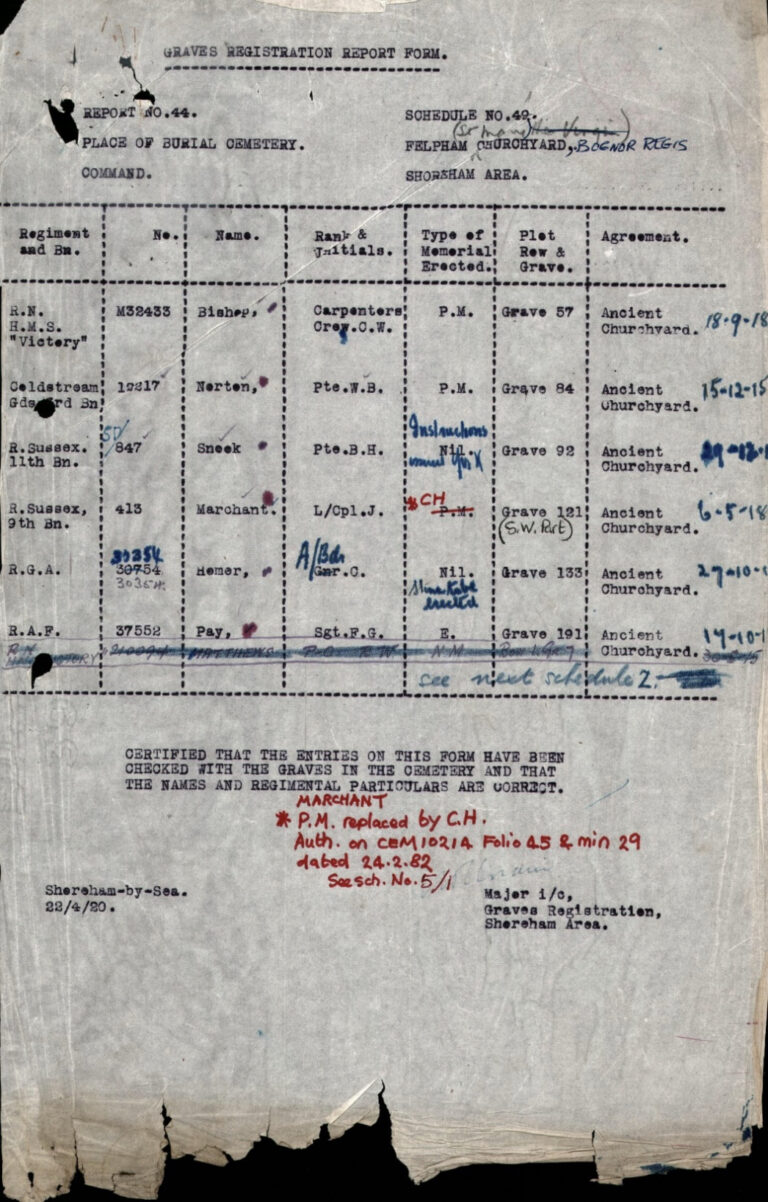 GRAVES REGISTRATION REPORT FORM.
REPORT NO.44. SCHEDULE NO.49.
(St Mary the Virgin)
PLACE OF BURIAL CEMETERY. FELPHAM CHURCHYARD, BOGNOR REGIS
COMMAND. SHOREHAM AREA.
Regiment and Bn. No. Name. Rank & Initials. Type of Memorial Erected. Plot Row & Grave. Agreement.
R.N. M32433 Bishop, Carpenters P.M. Grave 57 Ancient 18-9-18
H.M.S. Crew.C.W. Churchyard.
"Victory"
Coldstream 19217 Norton, Pte.W.B. P.M. Grave 84 Ancient 15-12-15
Gds 3rd Bn Churchyard.
SD/ Instructions
R.Sussex. 847 Sneek Pte.B.H. Nil. Grave 92 Ancient
11th Bn. Churchyard.
* CH
R.Sussex, 413 Marchant. L/Cpl.J. P.M. Grave 121 Ancient 6-5-18
9th Bn. (S.W. Part) Churchyard.
30354 A/Bdr
R.G.A. 30754 Homer, Gnr.C. Nil. Grave 133 Ancient 27-10-1
30354 erected Churchyard.
R.A.F. 37552 Pay, Sgt.F.G. E. Grave 191 Ancient 17-10-1
MATTHEWS P.O. N.M. Churchyard.
see next schedule 2.
CERTIFIED THAT THE ENTRIES ON THIS FORM HAVE BEEN
CHECKED WITH THE GRAVES IN THE CEMETERY AND THAT
THE NAMES AND REGIMENTAL PARTICULARS ARE CORRECT.
MARCHANT
* P.M. replaced by C.H.
Auth. on CEM10214 Folio 45 & min 29
dated 24.2.82
See sch. No. 5/1
Shoreham-by-Sea. Major i/c,
22/4/20. Graves Registration,
Shoreham Area.